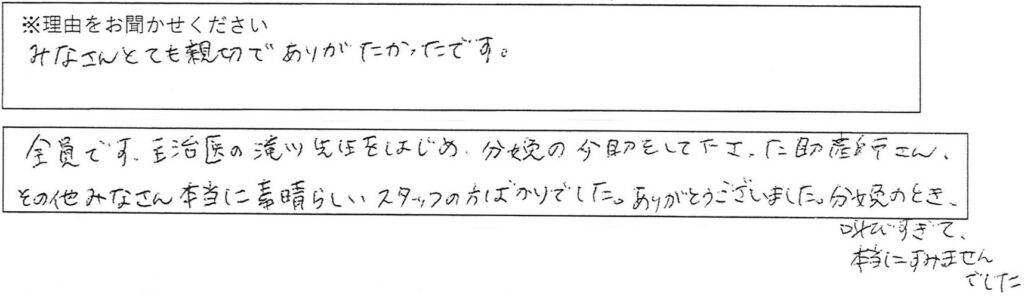 ※理由をお聞かせください
みなさんとても親切でありがたかったです。
全員です。主治医の滝川先生をはじめ、分娩の介助をして下さった助産師さん、
その他みなさん本当に素晴らしいスタッフの方ばかりでした。ありがとうございました。分娩のとき、
叫びすぎて、
本当にすみません
でした